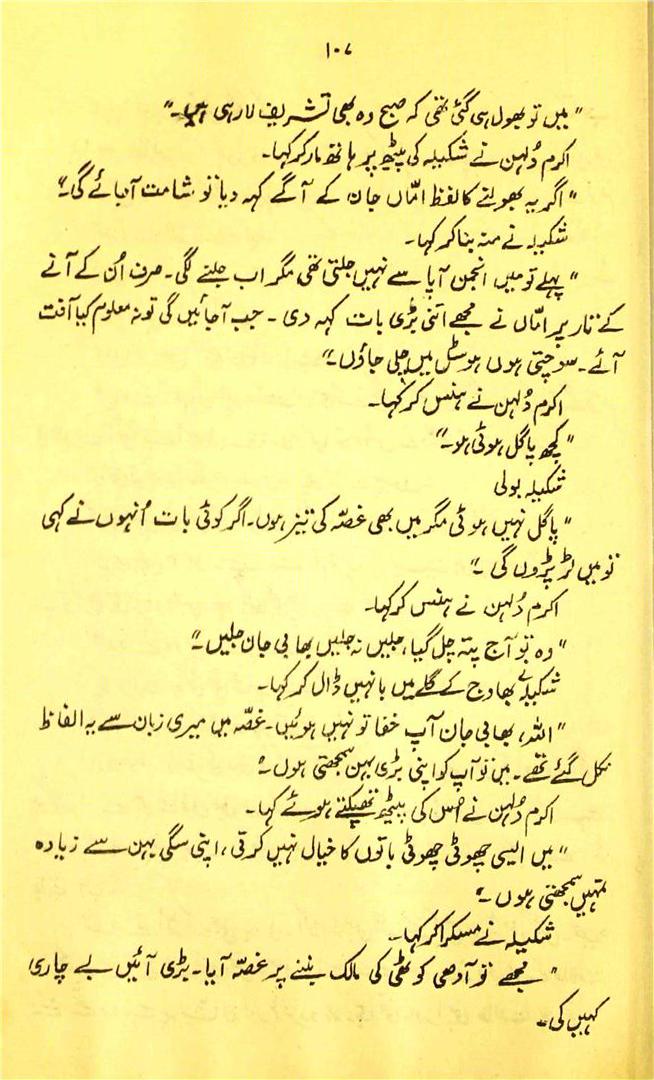 ۱۰۷
"میں تو بھول ہی گئی تھی کہ صبح وہ بھی تشریف لا رہی ہیں۔"
اکرم دُلہن نے شکیلہ کی پیٹھ پر ہاتھ مار کر کہا۔
"اگر یہ بھولنے کا لفظ امّاں جان کے آگے کہہ دیا تو شامت آجائے گی۔"
شکیلہ نے منہ بنا کر کہا۔
"پہلے تو میں انجمن آپا سے نہیں جلتی تھی مگر اب جلنے لگی۔ صرف اُن کے آنے
کے تار پر امّاں نے مجھے اتنی بڑی بات کہہ دی۔ جب آجائیں گی تو نہ معلوم کیا آفت
آئے۔ سوچتی ہوں ہوسٹل میں چلی جاؤں۔"
اکرم دُلہن نے ہنس کر کہا۔
"کچھ پاگل ہوئی ہو۔"
شکیلہ بولی
"پاگل نہیں ہوئی مگر میں بھی غصّہ کی تیز ہوں۔ اگر کوئی بات اُنہوں نے کہی
تو میں لڑ پڑوں گی۔"
اکرم دُلہن نے ہنس کر کہا۔
"وہ تو آج پتہ چل گیا، جلیں نہ جلیں بھابی جان جلیں۔"
شکیلہ نے بھاوج کے گلے میں بانہیں ڈال کر کہا۔
"اللہ، بھابی جان آپ خفا تو نہیں ہوئیں۔ غصّہ میں میری زبان سے یہ الفاظ
نکل گئے تھے۔ میں تو آپ کو اپنی بڑی بہن سمجھتی ہوں۔"
اکرم دُلہن نے اُس کی پیٹھ تھپکتے ہوئے کہا۔
"میں ایسی چھوٹی چھوٹی باتوں کا خیال نہیں کرتی، اپنی سگی بہن سے زیادہ
تمہیں سمجھتی ہوں۔"
شکیلہ نے مسکرا کر کہا۔
"مجھے تو آدھی کوٹھی کی مالک بننے پر غصّہ آیا۔ بڑی آئیں بے چاری
کہیں کی۔